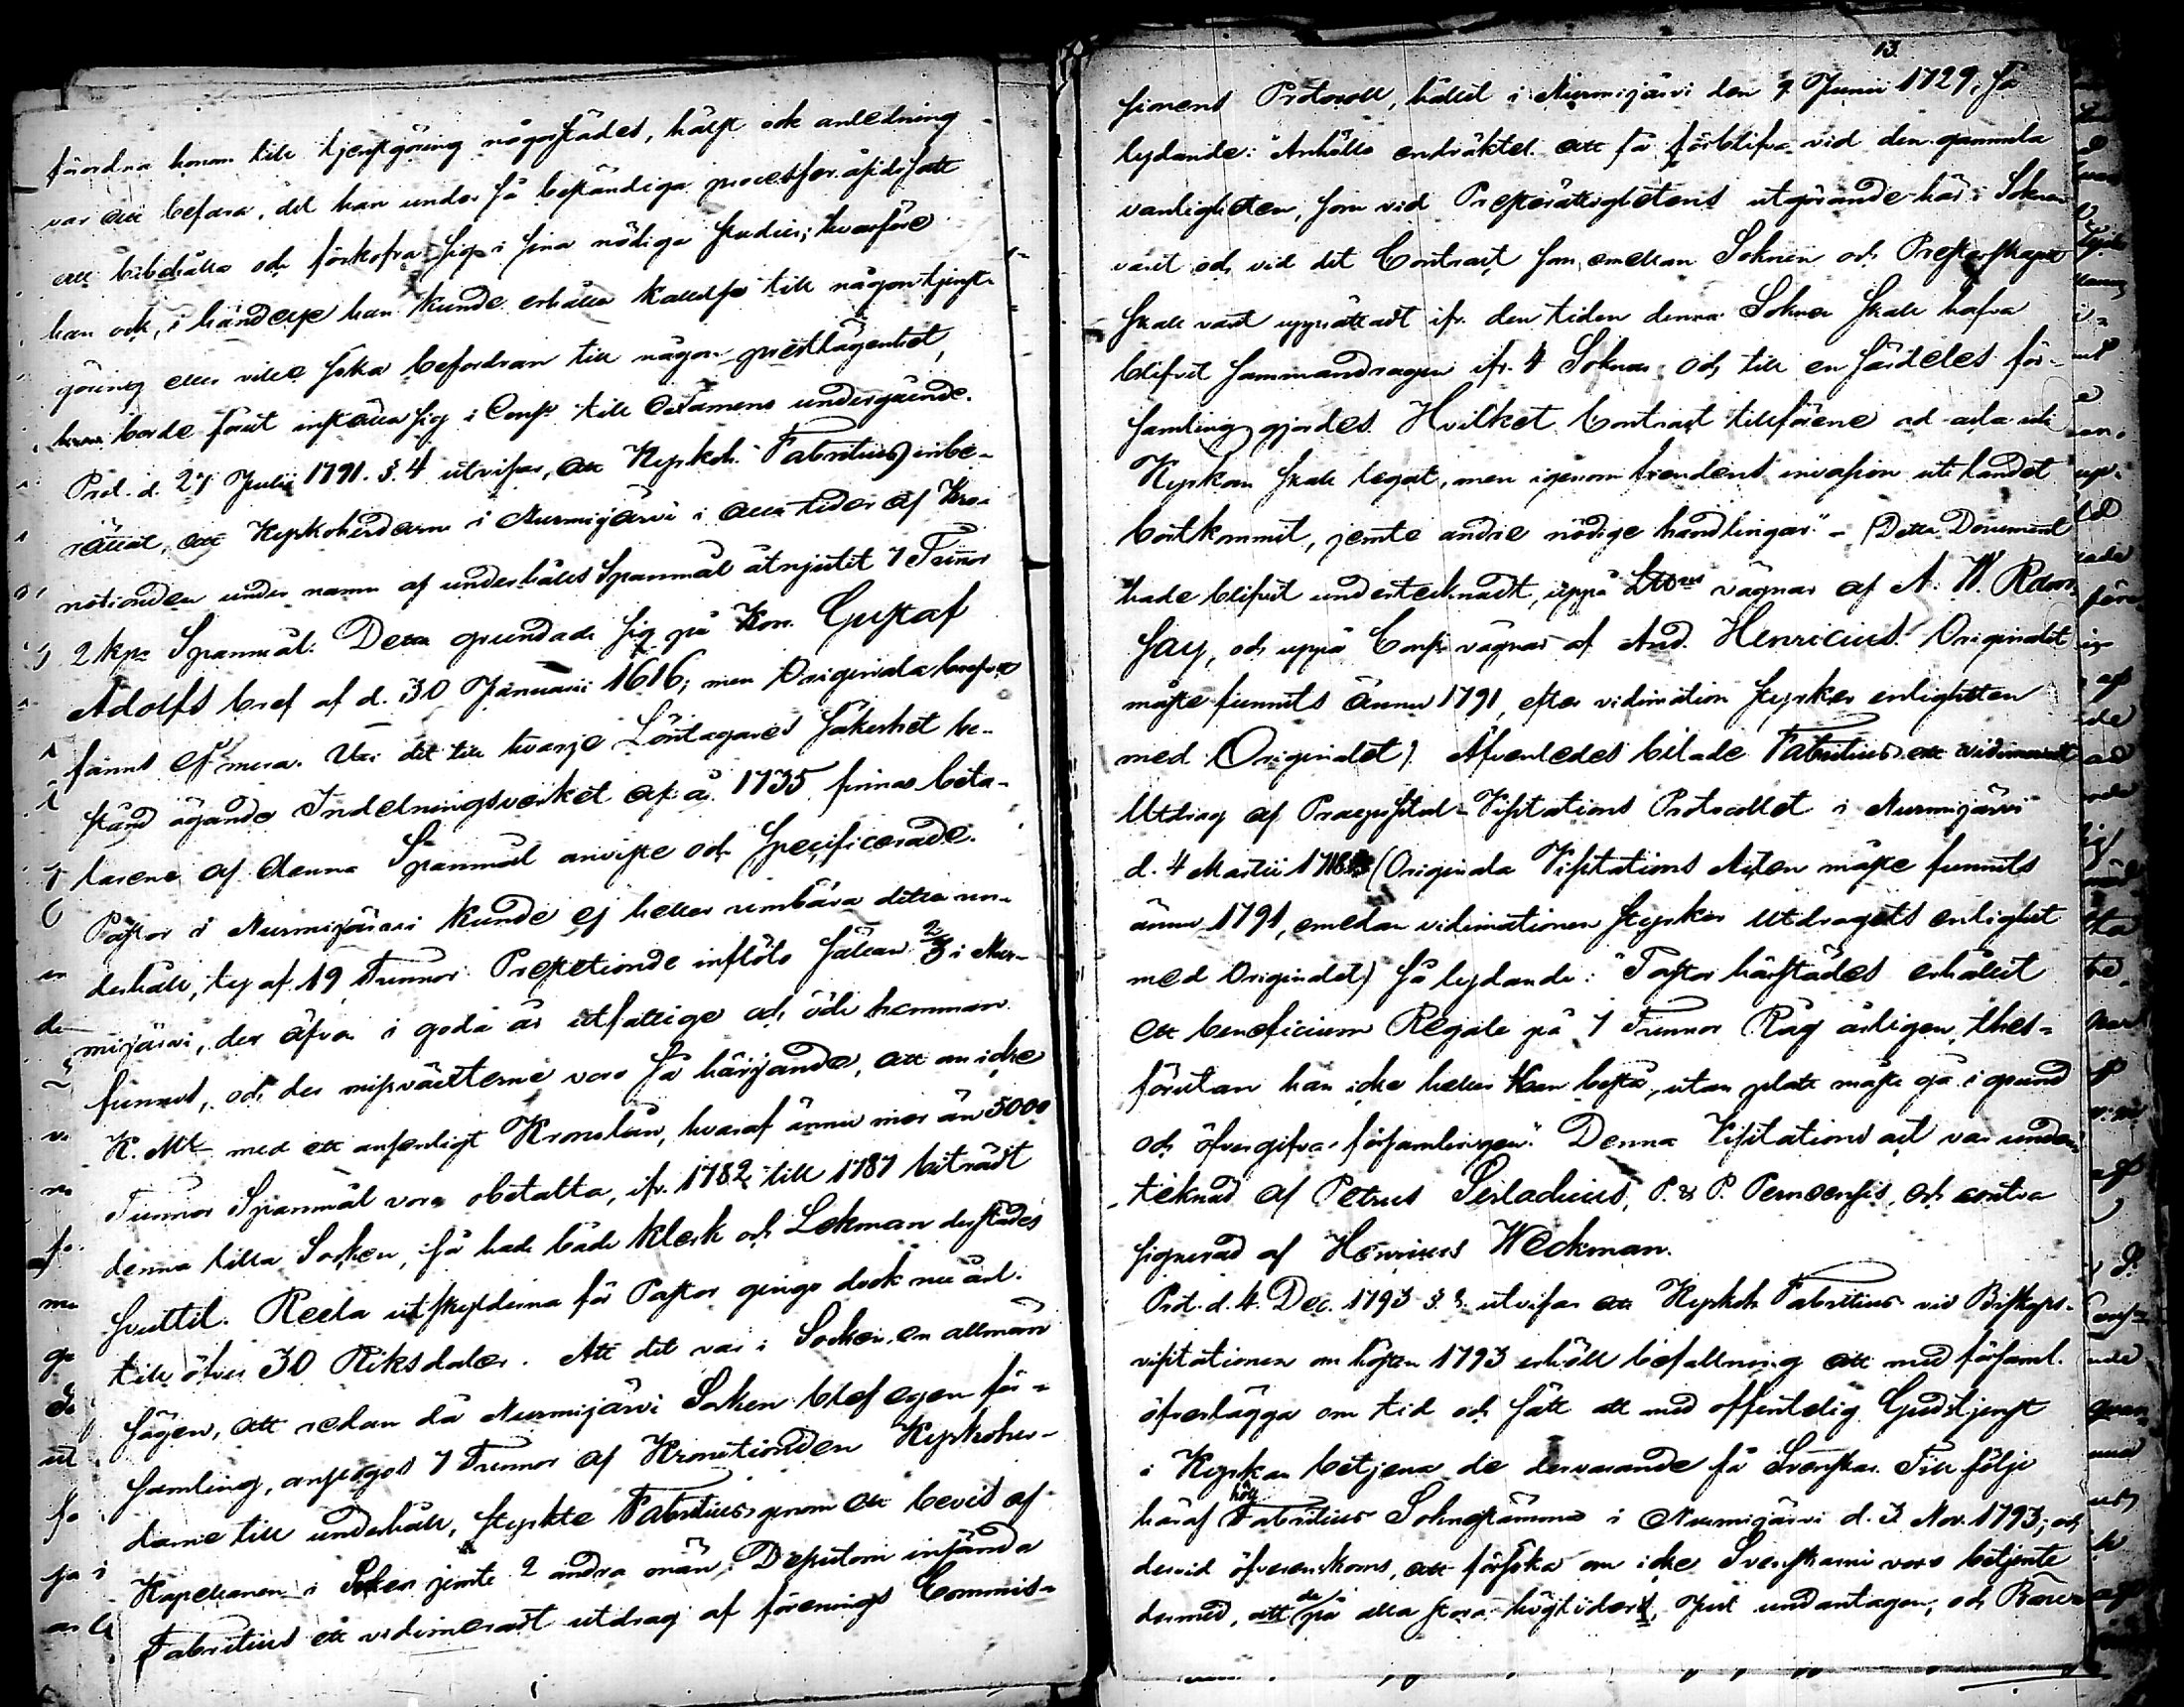 förordna honom till tjenstgöring någorstädes, hälst ock anledning
var att befara, det han under så beständiga processer åsidosatt
att bibehålla och förkofra sig i sina nödiga studier; hvarföre
han ock, i händelse han kunde erhålla kallelse till någon tjenst-
göring eller ville söka befordran till någon prestlägenhet,
borde förut inställa sig i Cons. till Examens undergående.
Prot. d. 27 Julii 1791. §. 4 utvisar, att Kyrkoh. Fabritius inbe-
rättat, att Kyrkoherdarne i Nurmijärvi i alla tider af Kro-
notionden under namn af underhålls Spannmål åtnjutit 7 Tunnor
2 kpr Spannmål. Detta grundade sig på Kon. Gustaf
Adolfs bref af d. 30 Januarii 1616; men Originala brefvet
fanns ej mera. Uti det till hvarje Löntagares säkerhet be-
stånd ägande Indelningsverket af år 1735 finnas beta-
larene af denna Spannmål anviste och specificerade.
Pastor i Nurmijärvi kunde ej heller umbära detta un-
derhåll, ty af 19 Tunnor Prestetionde inflöto sällan 2/3 i Nur-
mijärvi, der äfven i goda år utfattige och öde hemman
funnos, och der missväxterne voro så härjande, att om icke
K. Mt med ett ansenligt Kronolån, hvaraf ännu mer än 5000
Tunnor Spannmål voro obetalta, ifr. 1782 till 1787 biträdt
denna lilla Socken, så hade både Klerk och Lekman derstädes
svultit. Reela utskylderna för Pastor gingo dock nu årl.
till öfver 30 Riksdaler. Att det var i Socken en allmän
sägen, att redan då Nurmijärvi Socken blef egen för-
samling, anslogos 7 Tunnor af Kronotionden Kyrkoher-
darne till underhåll, styrkte Fabritius genom ett bevis af
Kapellanen i Socken jemte 2 andra män. Dessutom insände
Fabritius ett vidimeradt utdrag af förenings Commis-
13.
sionens Protocoll, hållit i Nurmijärvi den 9 Junii 1729, så
lydande: "Anhölls endräktel. att få förblifva vid den gammla
vanligheten, som vid Presterättighetens utgörande här i Soknen
varit och vid det Contract som emellan Soknen och Presterskapet
skall varit upprättadt ifr. den tiden denna Sokn skall hafva
blifvit sammandragen ifr. 4 Soknar och till en särdeles för-
samling gjordes. Hvilket Contract tillförene ad acta uti
Kyrkan skall legat, men igenom fiendens invasion uti landet
bortkommit, jemte andre nödige handlingar." - (Detta Document
hade blifvit undertecknadt, uppå vägnar af A. W.
och uppå Cons. vägnar af And. Henricius. Originalet
måste funnits ännu 1791, efter vidimation styrker enligheten
med Originalet). Äfvenledes bilade Fabritius ett vidimeradt
Utdrag af Praepositual-Visitations Protocollet i Nurmijärvi
d. 4 Martii (Originala Visitations Acten måste funnits
ännu 1791, emedan vidimationen styrker Utdragets enlighet
med Originalet) så lydande: "Pastor härstädes erhållit
ett beneficium Regale på 7 Tunnor Råg årligen, thes-
förutan han icke heller kan bestå, utan platt måste gå i grund
och öfvergifva församlingen." Denna Visitations act var under-
teknad af Petrus Serlachius, P. & P. Pernoensis, och contra
signerad af Henricus Weckman.
Prot. d. 4. Dec. 1793 §. 3 utvisar att Kyrkoh Fabritius vid Biskops-
visitationen om hösten 1793 erhöll befallning att med församl.
öfverlägga om tid och sätt att med offentelig Gudstjenst
i Kyrkan betjena de dervarande få Svenskar. Till följe
häraf höll Fabritius Soknestämma i Nurmijärvi d. 3 Nov. 1793; och
dervid öfverenskoms, att försöka om icke Svenskarne voro betjente
dermed, att de på alla stora högtider, Jul undantagen, och